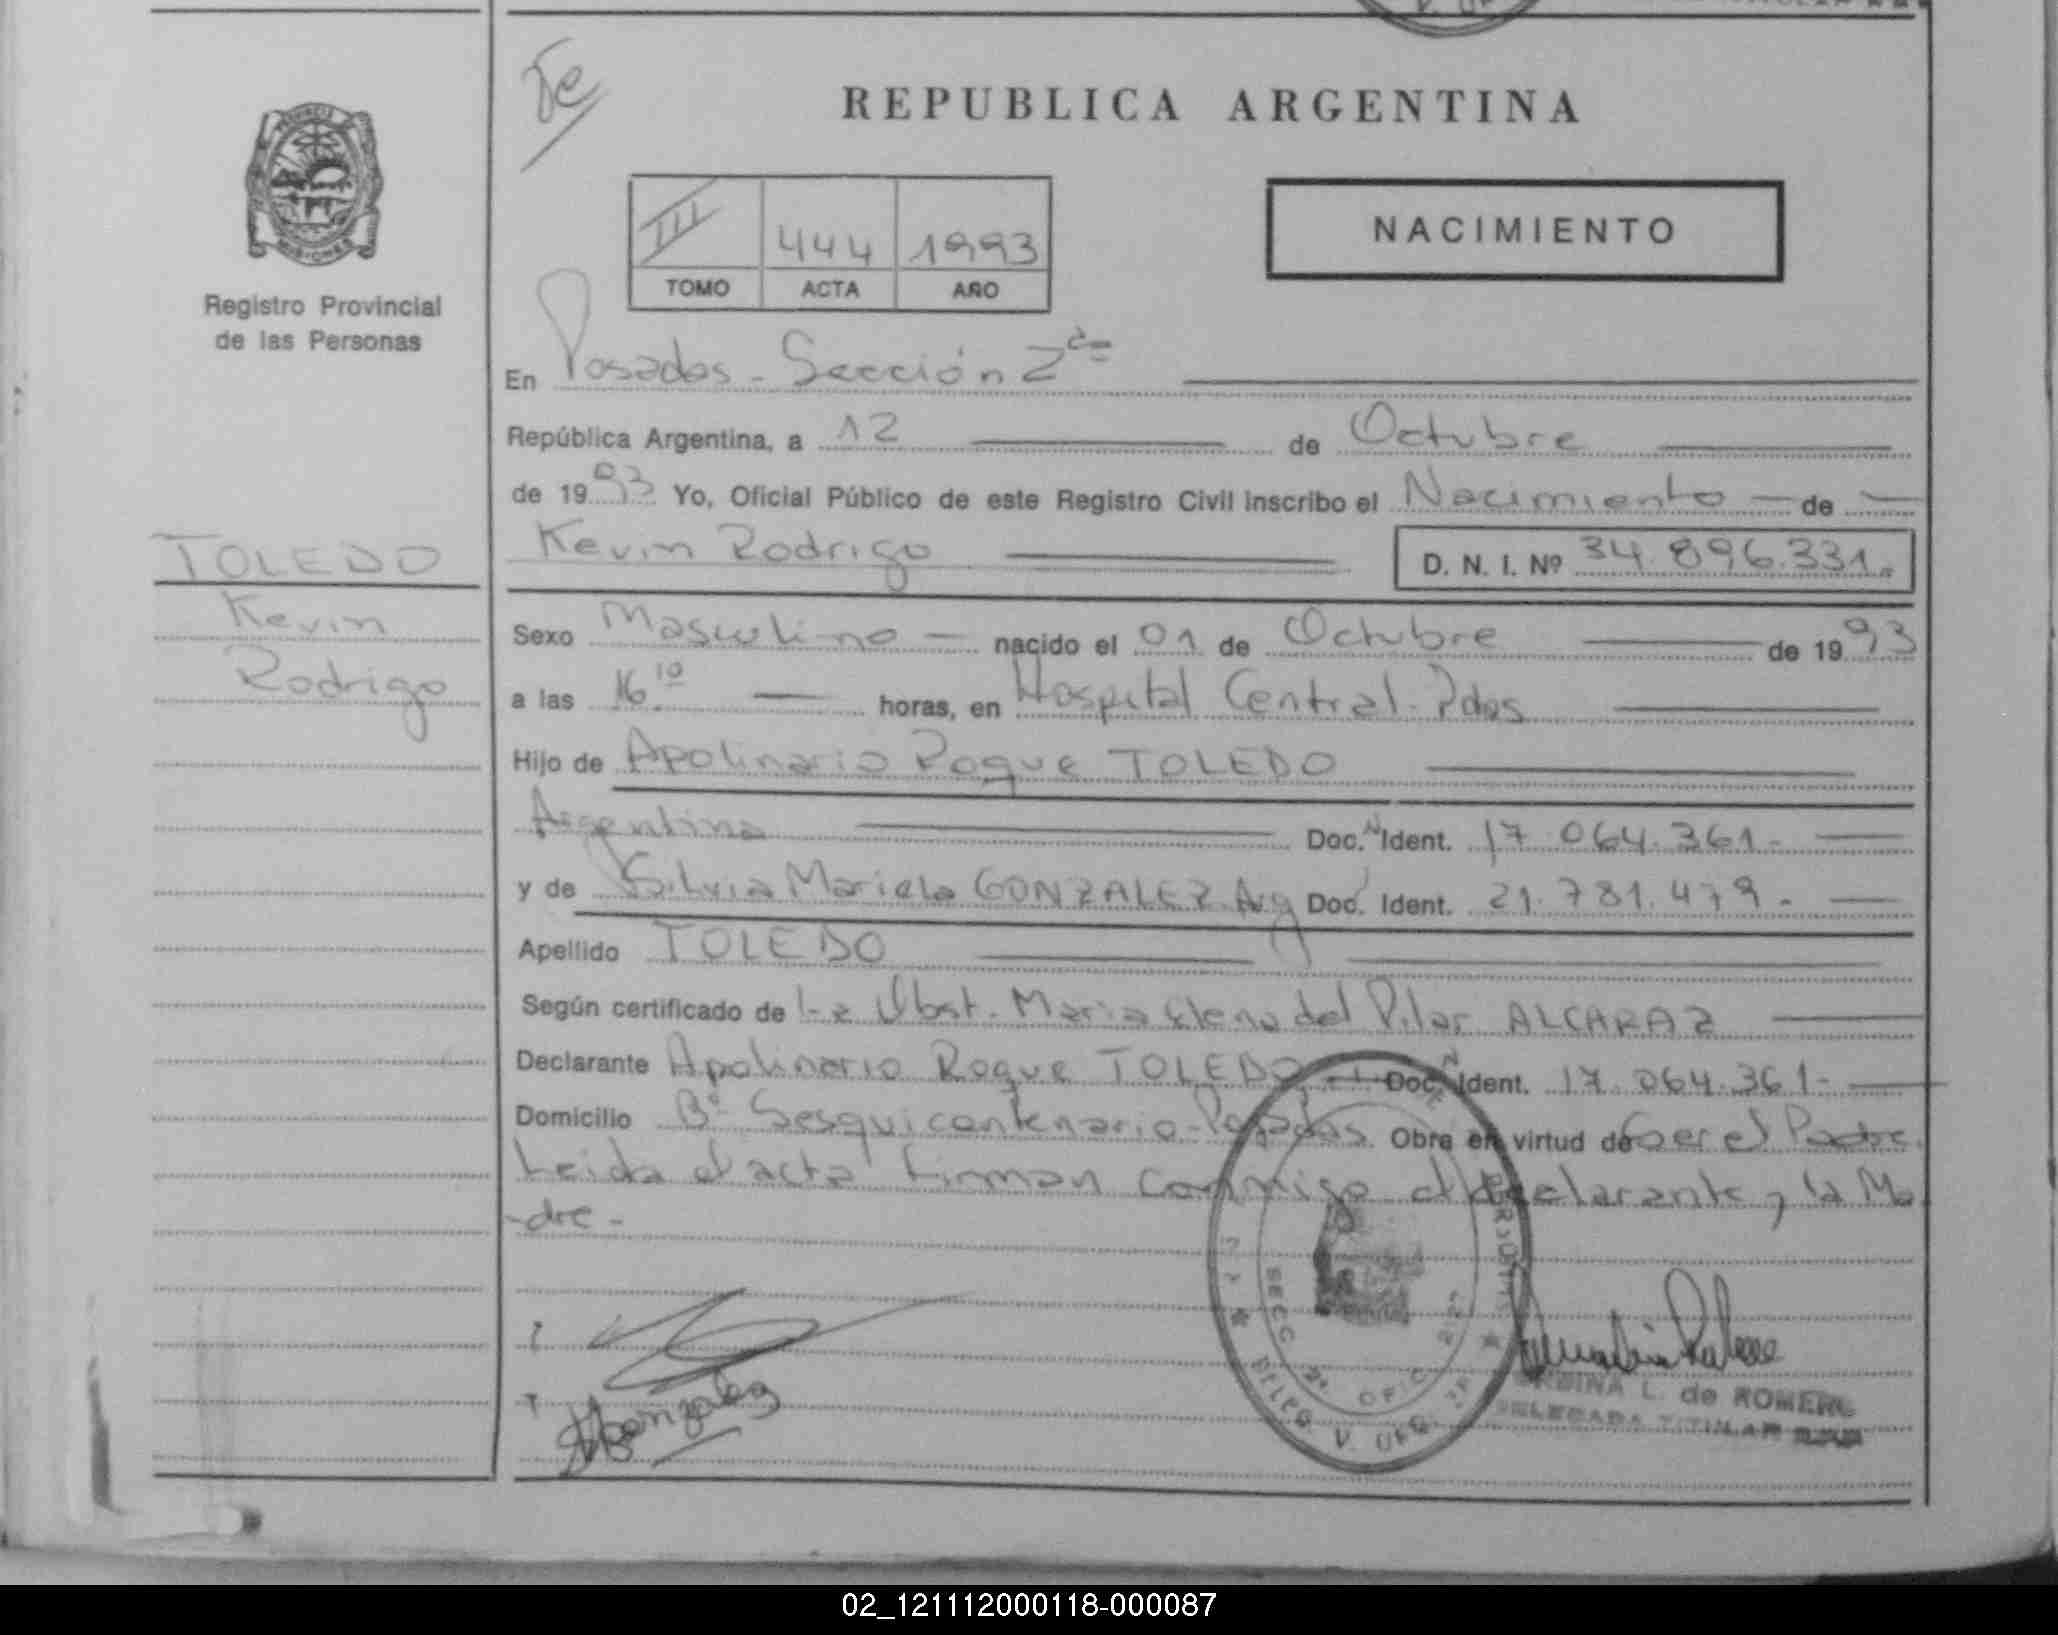 REPUBLICA ARGENTINA
NACIMIENTO
III 444 1993
TOMO ACTA AÑO
Registro Provincial
de las Personas
En Posadas - Sección 2da
República Argentina, a 12 de Octubre
de 1993 Yo, Oficial Público de este Registro Civil inscribo el Nacimiento de
Kevin Rodrigo D. N. I. Nº 34.896.331.
TOLEDO
Kevin
Rodrigo
Sexo Masculino nacido el 01 de Octubre de 1993
a las 16.10 horas, en Hospital Central. Pdas
Hijo de Apolinario Roque TOLEDO
Argentina Doc. N Ident. 17.064.361.-
y de Silvia Mariela GONZALEZ. Arg Doc. Ident. 21.781.479.-
Apellido TOLEDO
Según certificado de La Obst. Maria Elena del Pilar ALCARAZ
Declarante Apolinario Roque TOLEDO Doc. N Ident. 17.064.361-
Domicilio Bº Sesquicentenario - Posadas. Obra en virtud de ser el Padre.
Leida el acta firman conmigo el declarante y la Ma
-dre-
SECC. 2ª OFIC.
DELEG. V. URQ.
Gonzalez
L. de ROMERO
DELEGADA TITULAR
02_121112000118-000087